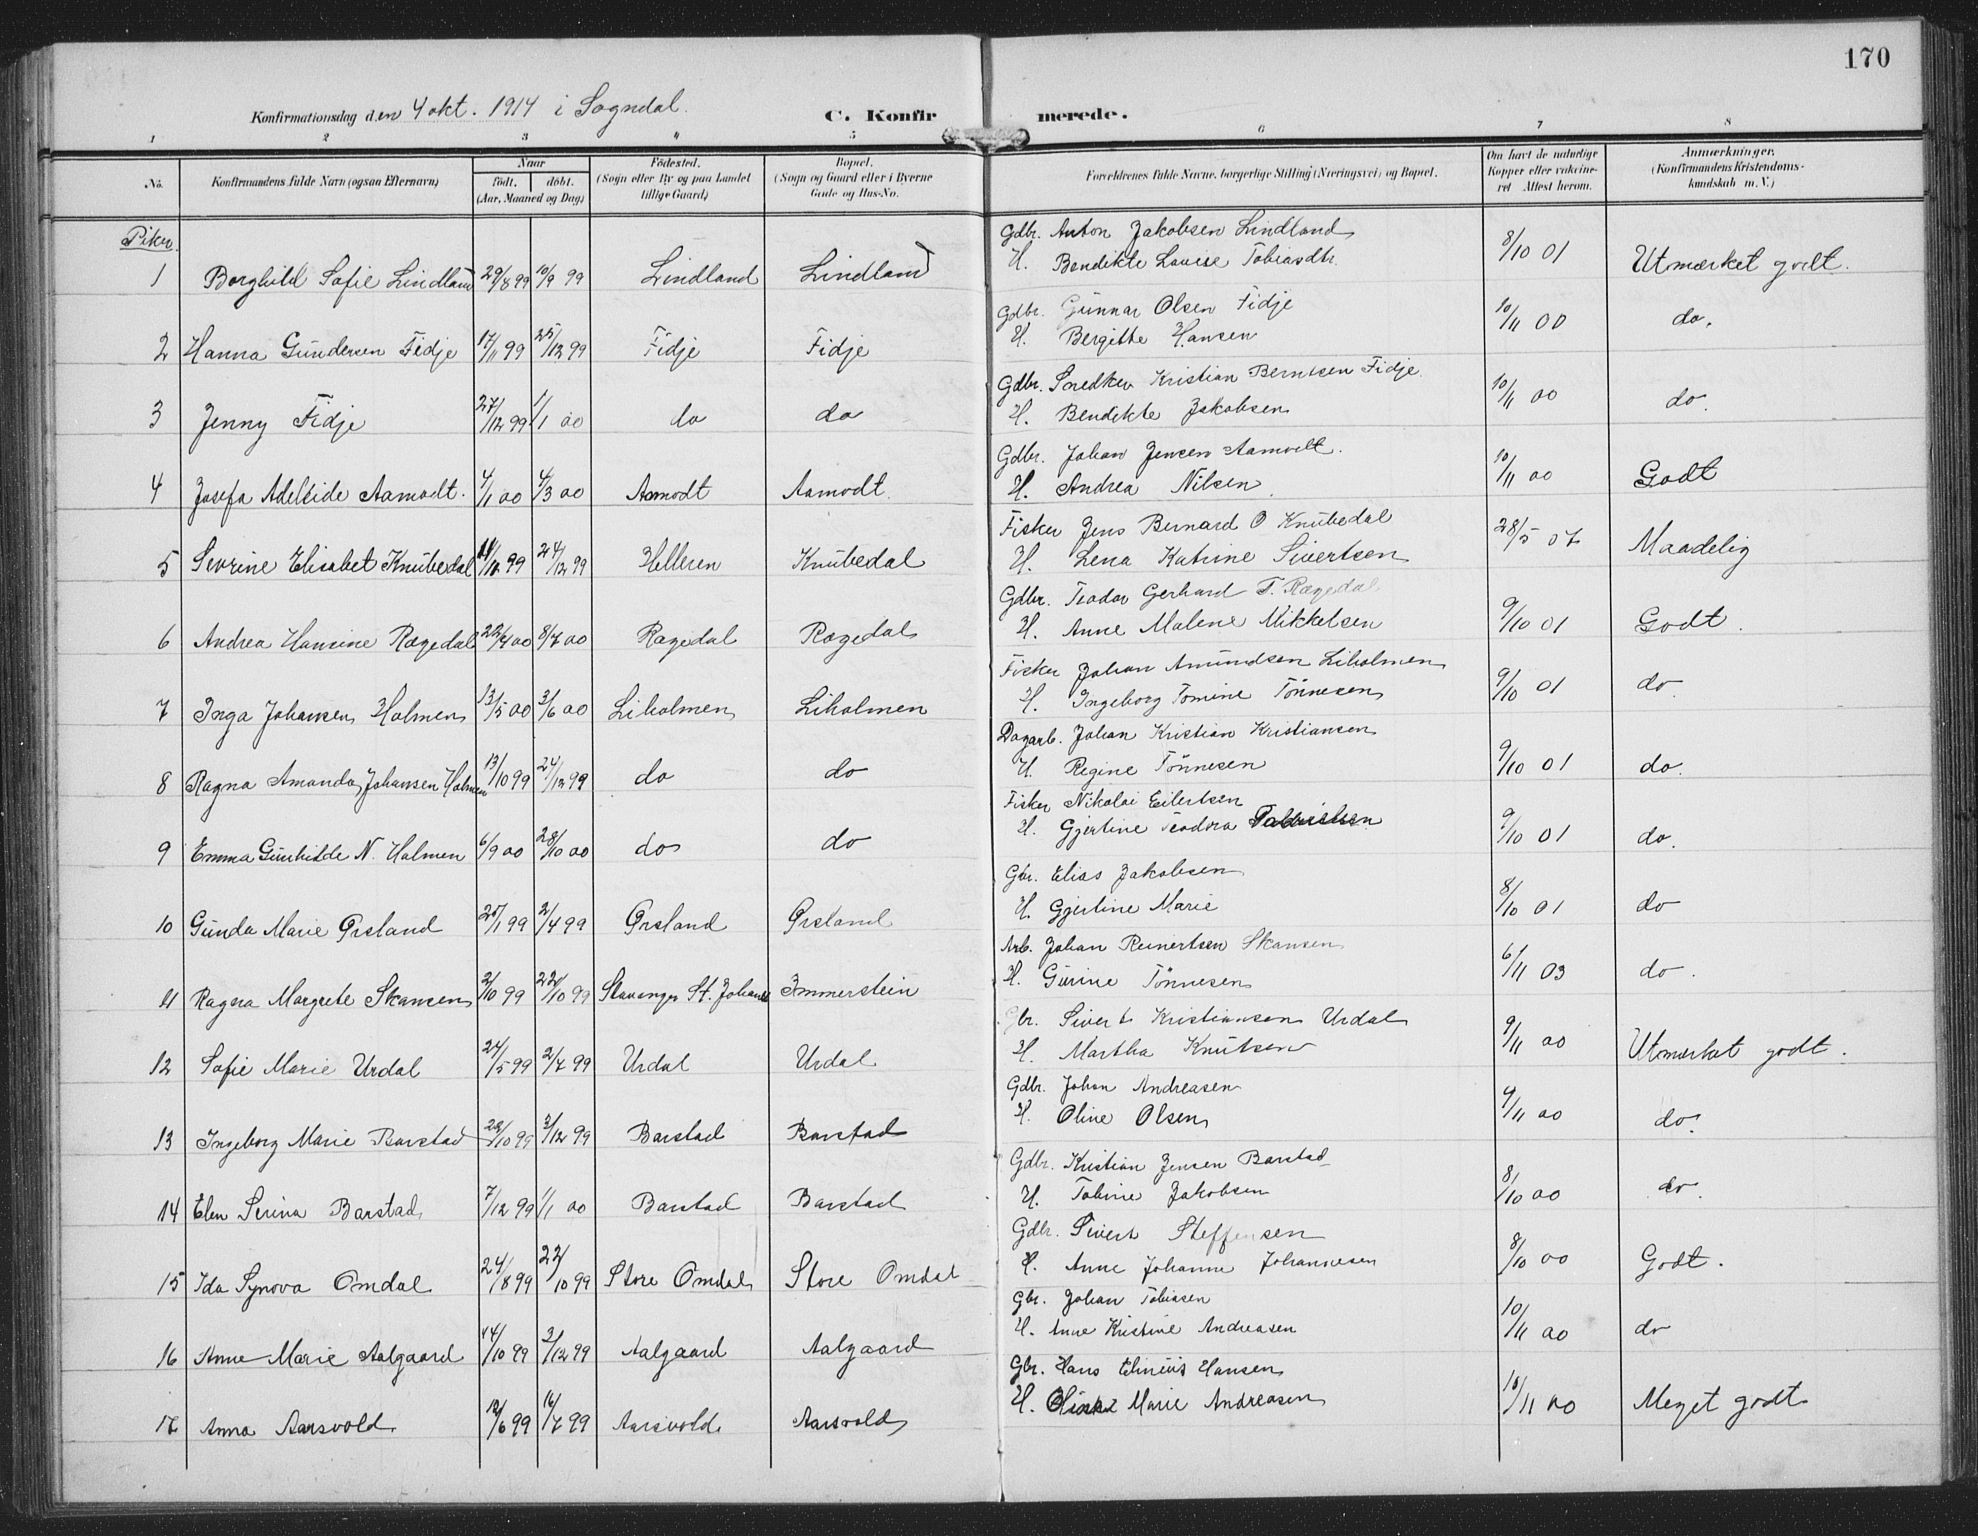 170
Konfirmationsdag den 4 okt. 1914 i Sogndal.
C. Konfirmerede.
1 2 3 4 5 6 7 8
No. Konfirmandens fulde Navn (ogsaa Efternavn) Naar født. døbt. (Aar, Maaned og Dag) Födested. (Sogn eller By og paa Landet tillige Gaard) Bopæl. (Sogn og Gaard eller i Byerne Gade og Hus-No. Forældrenes fulde Navne, borgerlige Stilling (Næringsvei) og Bopæl. Om havt de naturlige Kopper eller vaccineret. Attest herom. Anmærkninger. (Konfirmandens Kristendomskundskab m. V.)
Piker.
Gdbr. Anton Jakobsen Lindland
1 Borghild Sofie Lindland 29/8 99 10/9 99 Lindland Lindland H. Bendikte Lovise Tobiasdtr. 8/10 01 Utmærket godt.
Gdbr. Gunnar Olsen Fidje
2 Hanna Gundersen Fidje 17/11 99 25/12 99 Fidje Fidje H. Bergitte Hansen 10/11 00 do.
Gdbr. Kristian Berntsen Fidje
3 Jenny Fidje 27/12 99 1/1 00 do do H. Bendikte Jakobsen 10/11 00 do.
Gdbr. Johan Jensen Aamodt.
4 Josefa Adeleide Aamodt. 4/1 00 4/3 00 Aamodt Aamodt. H. Andrea Nilsen 10/11 00 Godt
Fisker Jens Bernard O Knubedal
5 Sevrine Elisabet Knubedal 99 24/12 99 Helleren Knubedal H. Lena Katrine Sivertsen 28/5 07 Maadelig
Gdbr. Teodor Gerhard T. Rægedal
6 Andrea Hansine Rægedal 00 8/7 00 Rægedal Rægedal H. Anne Malene Mikkelsen 9/10 01 Godt.
Fisker Johan Amundsen Liholmen
7 Inga Johansen Holmen 13/5 00 3/6 00 Liholmen Liholmen H. Ingeborg Tomine Tönnesen 9/10 01 do
Dagarb. Johan Kristian Kristiansen
8 Ragna Amanda Johansen Holmen 13/10 99 24/12 99 do do H. Regine Tönnesen 9/10 01 do.
Fisker Nikolai Eilertsen
9 Emma Gunhilde N. Holmen 6/9 00 28/10 00 do do H. Gjertine Teodora 9/10 01 do.
Gbr. Elias Jakobsen
10 Gunda Marie Ørsland 99 2/4 99 Ørsland Ørsland H. Gjertine Marie 8/10 01 do
Arb. Johan Reinertsen Skansen
11 Ragna Margrete Skansen 2/10 99 22/10 99 Stavanger St. Johannes Immerstein H. Gurine Tönnesen 6/11 03 do.
Gbr. Sivert Kristiansen Urdal
12 Sofie Marie Urdal 24/5 99 2/7 99 Urdal Urdal H. Martha Knutsen 9/11 00 Utmerket godt.
Gdbr. Johan Andreasen
13 Ingeborg Marie Barstad 22/10 99 3/12 99 Barstad Barstad H. Oline Olsen 9/11 00 do.
Gdbr. Kristian Jensen Barstad
14 Elen Serina Barstad 7/12 99 1/1 00 Barstad Barstad H. Tobine Jakobsen 8/10 00 do.
Gdbr. Sivert Steffensen
15 Ida Synova Omdal 24/8 99 22/10 99 Store Omdal Store Omdal H. Anne Johanne Johannesen 8/10 00 Godt.
Gbr. Johan Tobiasen
16 Anne Marie Aalgaard 14/10 99 3/12 99 Aalgaard Aalgaard H. Anne Kristine Andreasen 10/11 00 do
Gbr. Hans Elineus Hansen
17 Anna Aarsvold 99 16/7 99 Aarsvold Aarsvold H. Marie Andreasen 10/11 00 Meget godt